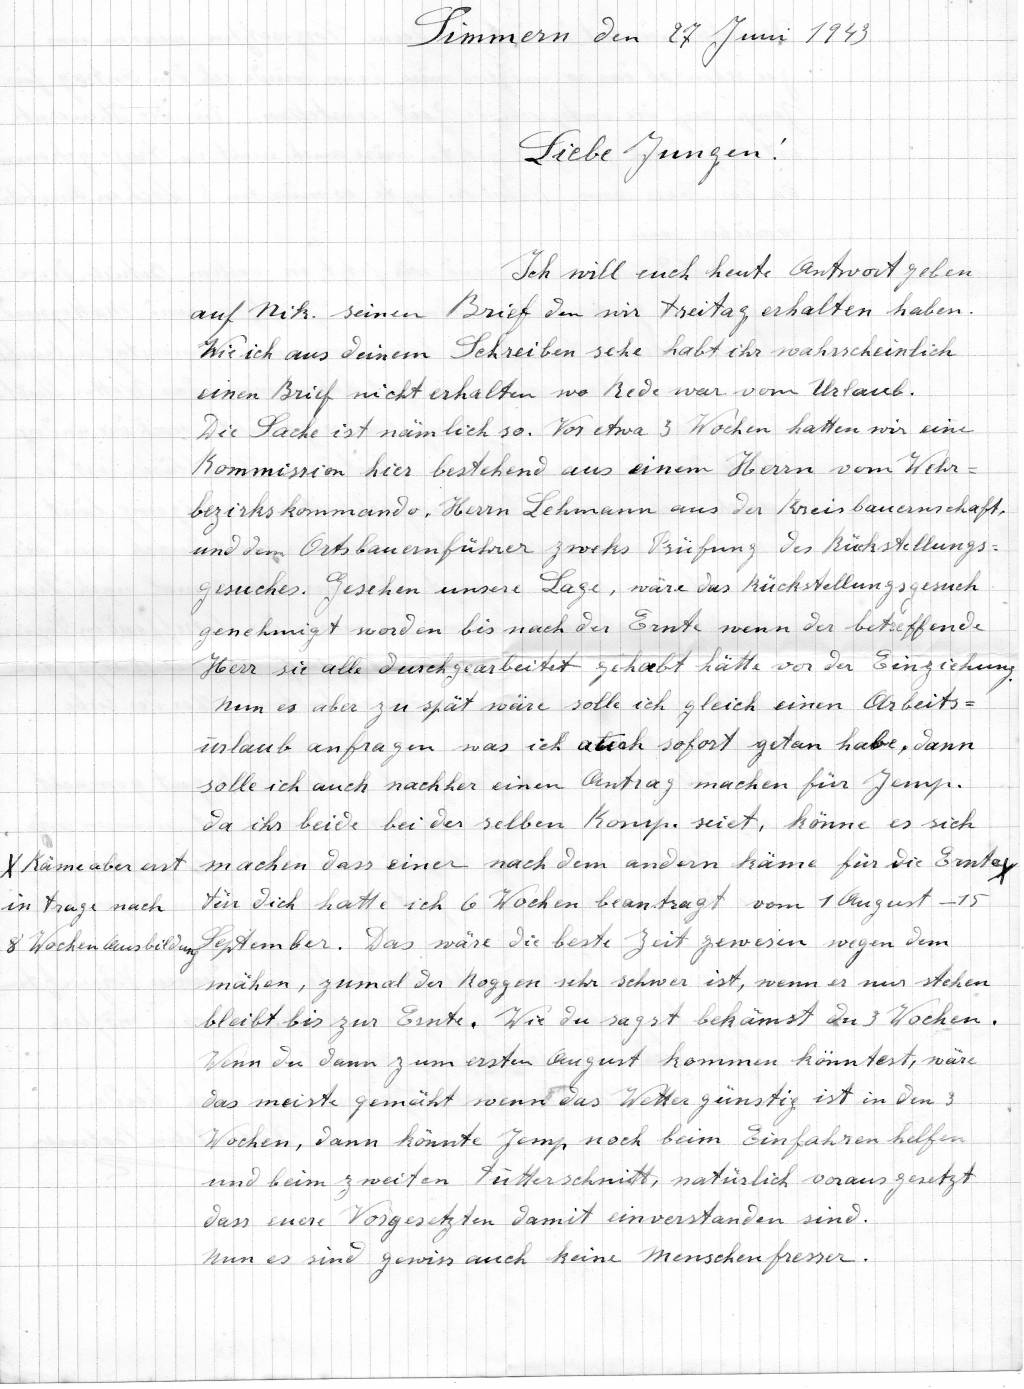 Simmern den 27 Juni 1943
Liebe Jungen!
Ich will euch heute Antwort geben
auf Nik. seinen Brief den wir Freitag erhalten haben.
Wie ich aus deinem Schreiben sehe habt ihr wahrscheinlich
einen Brief nicht erhalten wo Rede war vom Urlaub.
Die Sache ist nämlich so. Vor etwa 3 Wochen hatten wir eine
Kommission hier bestehend aus einem Herrn vom Wehr=
bezirkskommando, Herrn Lehmann aus der Kreisbauernschaft,
und dem Ortsbauernführer zweks Prüfung des Rückstellungs=
gesuches. Gesehen unsere Lage, wäre das Rückstellungsgesuch
genehmigt worden bis nach der Ernte wenn der betreffende
Herr sie alle durchgearbeitet gehabt hätte vor der Einziehung.
Nun es aber zu spät wäre solle ich gleich einen Arbeits=
urlaub anfragen was ich auch sofort getan habe, dann
solle ich auch nachher einen Antrag machen für Jemp.
da ihr beide bei der selben Komp. seiet, könne es sich
machen dass einer nach dem andern käme für die Ernte X
X Käme aber erst
in Frage nach
8 Wochen Ausbildung
Für dich hatte ich 6 Wochen beantragt vom 1 August – 15
September. Das wäre die beste Zeit gewesen wegen dem
mähen, zumal der Roggen sehr schwer ist, wenn er nur stehen
bleibt bis zur Ernte. Wie du sagst bekämst du 3 Wochen.
Wenn du dann zum ersten August kommen könntest, wäre
das meiste gemäht wenn das Wetter günstig ist in den 3
Wochen, dann könnte Jemp noch beim Einfahren helfen
und beim zweiten Futterschnitt, natürlich vorausgesetzt
dass euere Vorgesetzten damit einverstanden sind.
Nun es sind gewiss auch keine Menschenfresser.